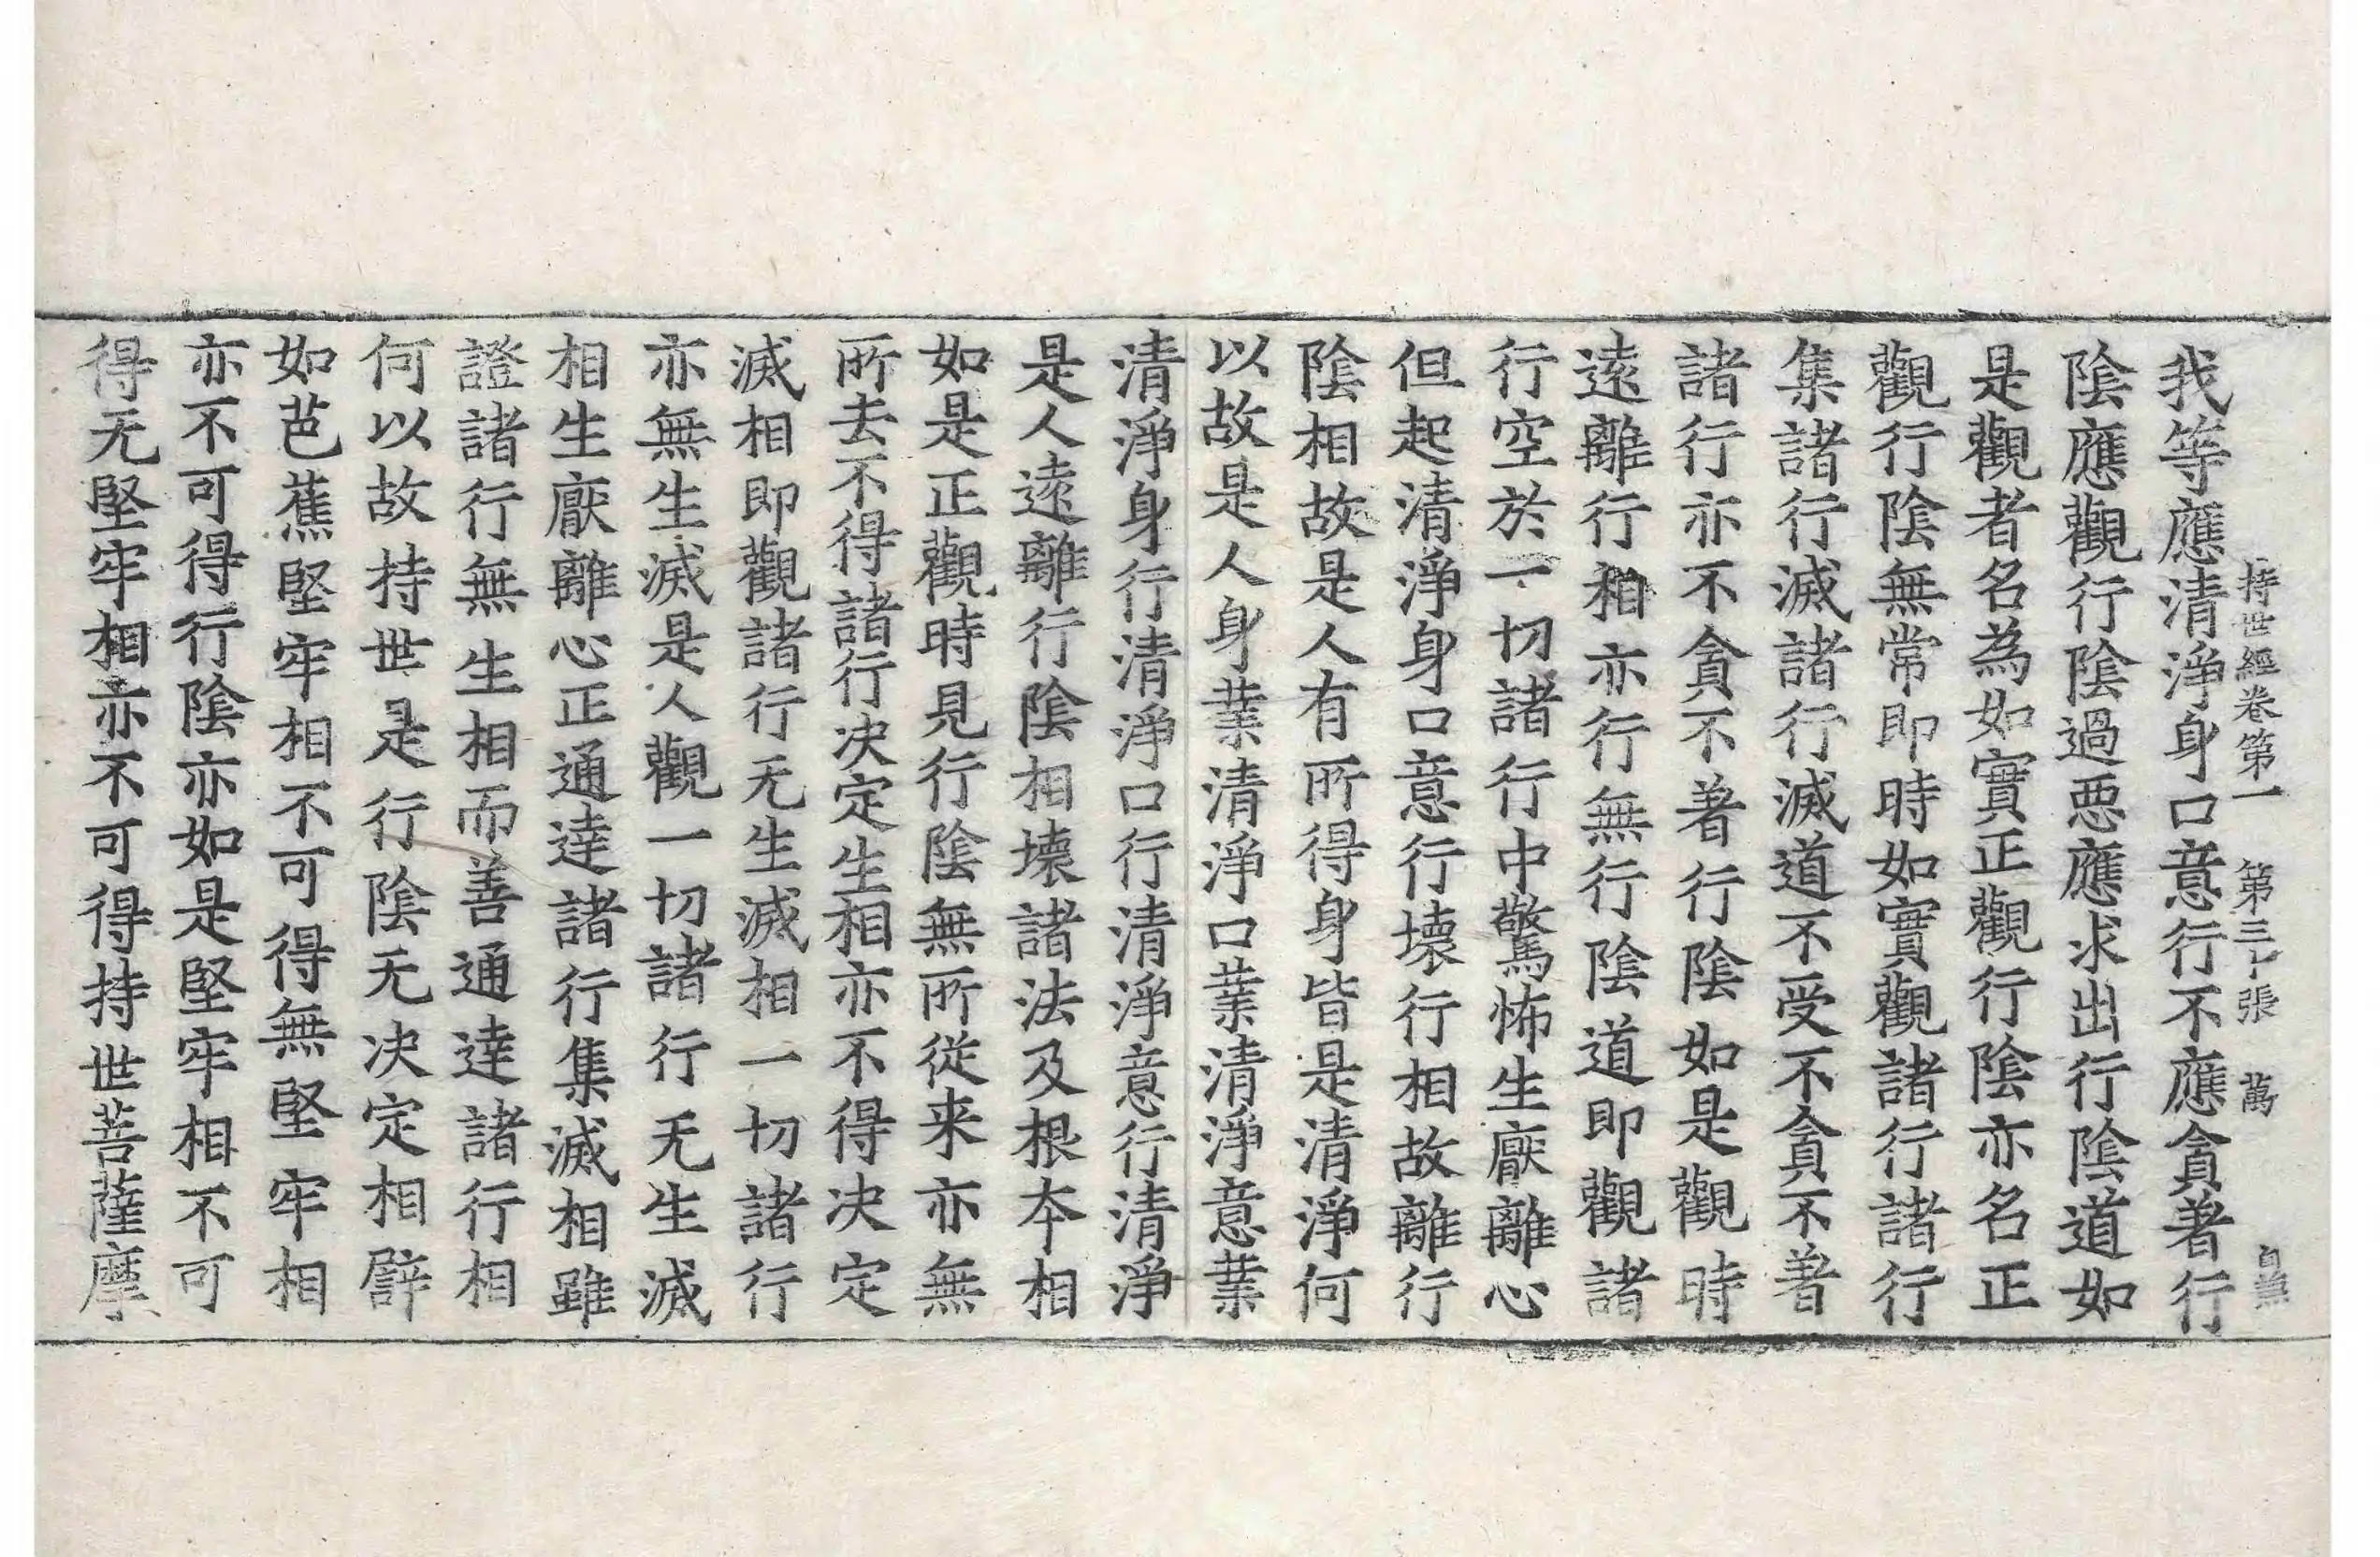 持世經卷第一　第三十張　萬
我等應清淨身口意行不應貪著行
陰應觀行陰過惡應求出行陰道如
是觀者名為如實正觀行陰亦名正
觀行陰無常即時如實觀諸行諸行
集諸行滅諸行滅道不受不貪不著
諸行亦不貪不著行陰如是觀時
遠離行相亦行無行陰道即觀諸
行空於一切諸行中驚怖生厭離心
但起清淨身口意行壞行相故離行
陰相故是人有所得身皆是清淨何
以故是人身業清淨口業清淨意業
清淨身行清淨口行清淨意行清淨
是人遠離行陰相壞諸法及根本相
如是正觀時見行陰無所從来亦無
所去不得諸行決定生相亦不得決定
滅相即觀諸行无生滅相一切諸行
亦無生滅是人觀一切諸行无生滅
相生厭離心正通達諸行集滅相雖
證諸行無生相而善通達諸行相
何以故持世是行陰无決定相譬
如芭蕉堅牢相不可得無堅牢相
亦不可得行陰亦如是堅牢相不可
得无堅牢相亦不可得持世菩薩摩